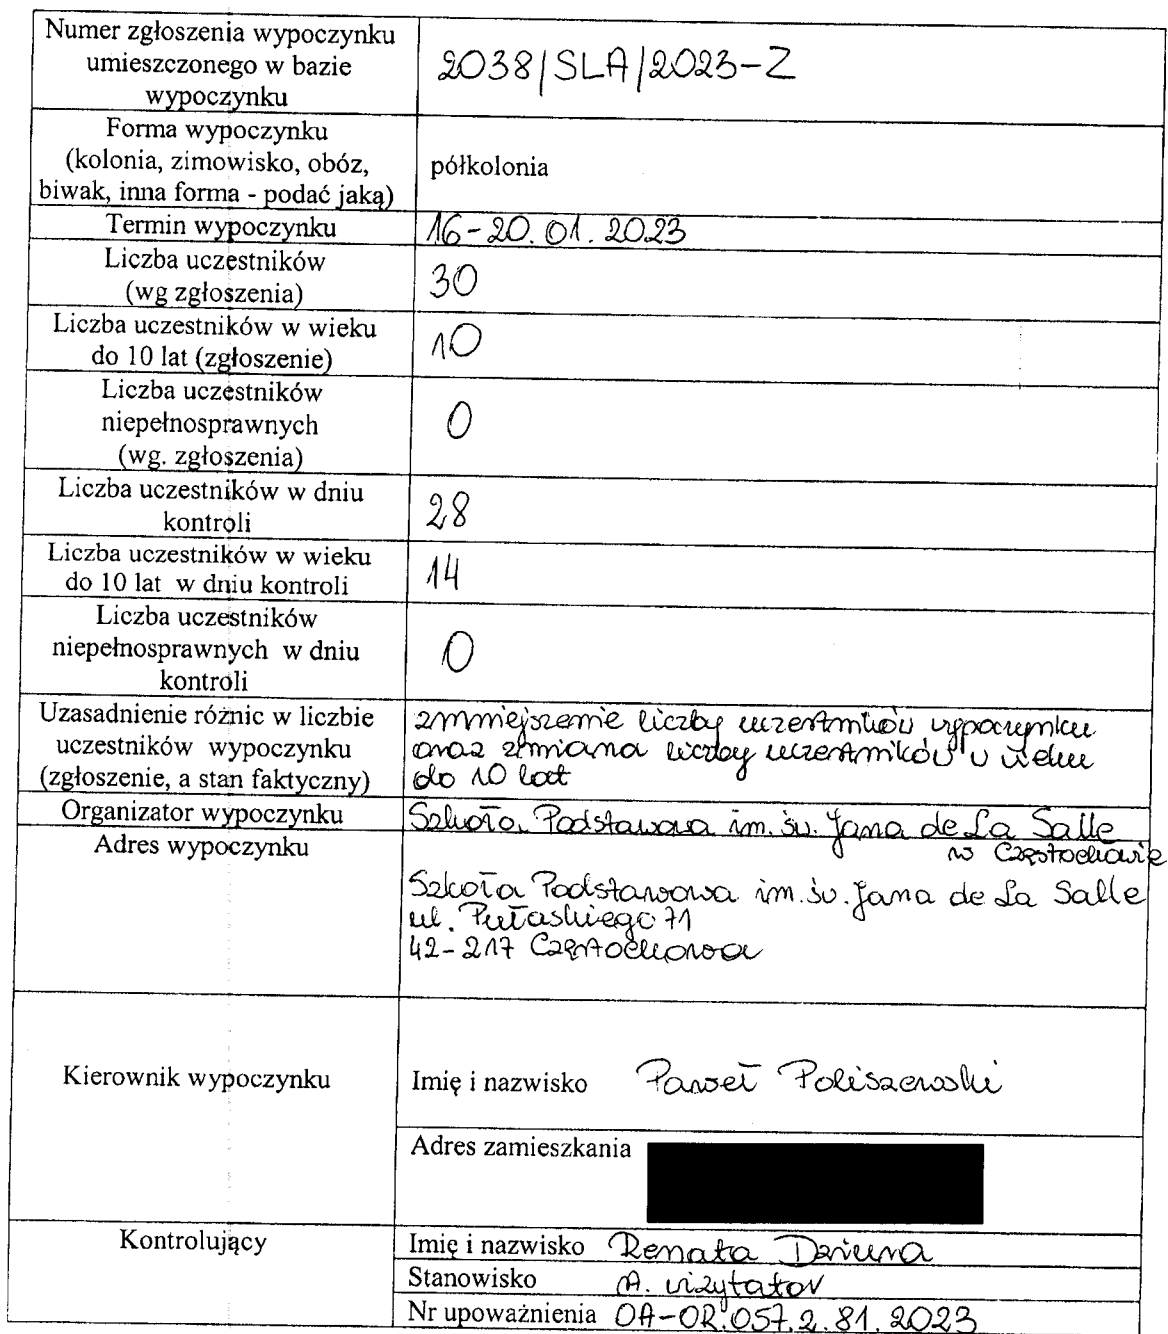 Numer zgłoszenia wypoczynku
umieszczonego w bazie
wypoczynku
2038/SLA/2023-Z
Forma wypoczynku
(kolonia, zimowisko, obóz,
biwak, inna forma - podać jaką)
półkolonia
Termin wypoczynku
16-20.01.2023
Liczba uczestników
(wg zgłoszenia)
30
Liczba uczestników w wieku
do 10 lat (zgłoszenie)
10
Liczba uczestników
niepełnosprawnych
(wg. zgłoszenia)
0
Liczba uczestników w dniu
kontroli
28
Liczba uczestników w wieku
do 10 lat w dniu kontroli
14
Liczba uczestników
niepełnosprawnych w dniu
kontroli
0
Uzasadnienie różnic w liczbie
uczestników wypoczynku
(zgłoszenie, a stan faktyczny)
zmniejszenie liczby uczestników wypoczynku
oraz zmiana liczby uczestników w wieku
do 10 lat
Organizator wypoczynku
Szkoła Podstawowa im. św. Jana de La Salle
w Częstochowie
Adres wypoczynku
Szkoła Podstawowa im. św. Jana de La Salle
ul. Pułaskiego 71
42-217 Częstochowa
Kierownik wypoczynku
Imię i nazwisko Paweł Poliszewski
Adres zamieszkania
Kontrolujący
Imię i nazwisko Renata Dziura
Stanowisko st. wizytator
Nr upoważnienia OA-OR.057.2.81.2023